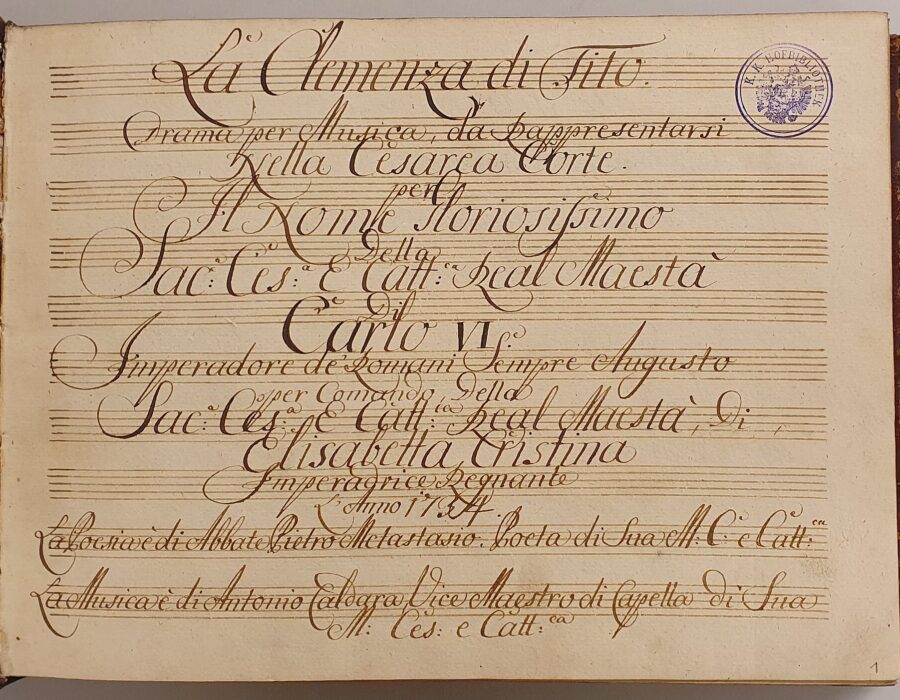 La Clemenza di Tito.
K. K. HOFBIBLIOTHEK
Drama per Musica, da Rappresentarsi
Nella Cesarea Corte.
per
Il Nome Gloriosissimo
Della
Sac.ª Ces.ª E Catt.ca Real Maestà
Di
Carlo VI.
Imperadore de' Romani Sempre Augusto
per Comando, Della
Sac.ª Ces.ª E Catt.ca Real Maestà, Di
Elisabetta Cristina
Imperadrice Regnante
L'Anno 1734.
La Poesia è di Abbate Pietro Metastasio. Poeta di Sua M: C.ª e Catt:ca
La Musica è di Antonio Caldara, Vice Maestro di Capella di Sua
M: Ces: e Catt:ca
1